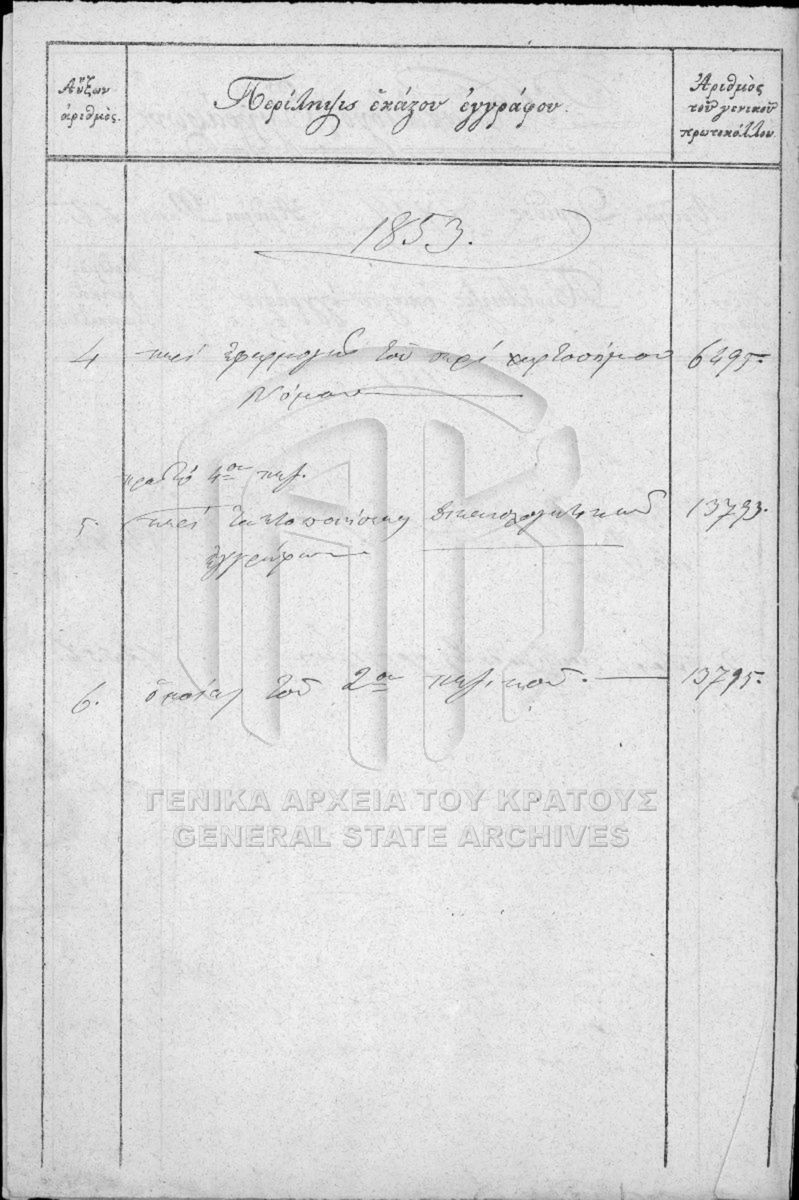 Αὔξων
ἀριθμὸς.
Περίληψις ἑκάστου ἐγγράφου.
Ἀριθμὸς
τοῦ γενικοῦ
πρωτοκόλλου.
1853.
4 περί ἐφαρμογῆς τοῦ περί χαρτοσήμου 6495.
Νόμου
4ου
5. περί τακτοποιήσεως δικαιολογητικῶν 13793.
ἐγγράφων
6. ὁμοίως τοῦ 2ου 13795.
ΓΕΝΙΚΑ ΑΡΧΕΙΑ ΤΟΥ ΚΡΑΤΟΥΣ
GENERAL STATE ARCHIVES